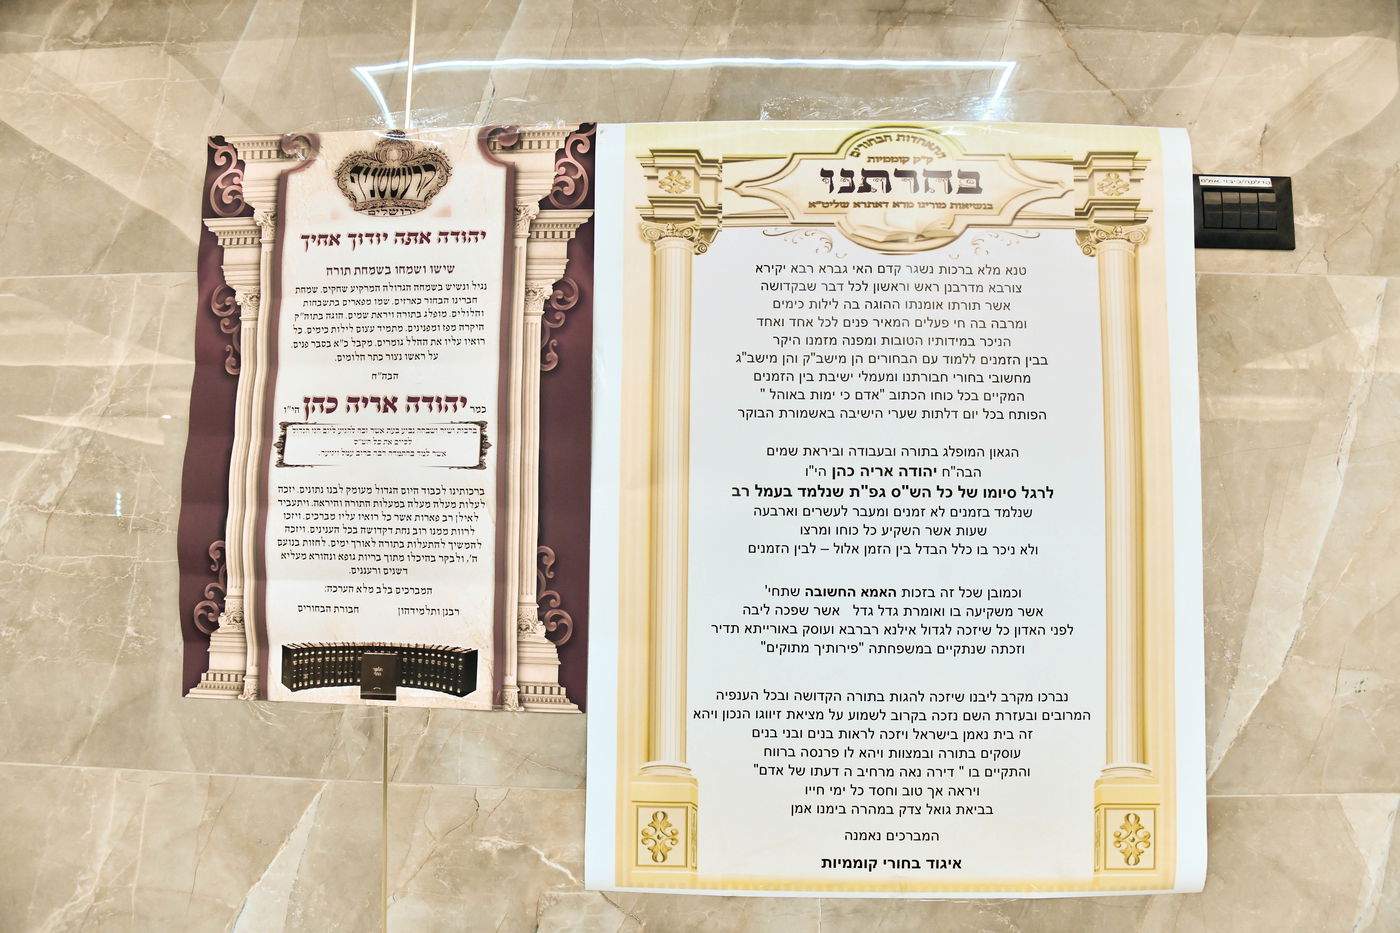 קרושטניה
ירושלים
יהודה אתה יודוך אחיך
שישו ושמחו בשמחת תורה
נגיל ונשיש בשמחה הגדולה המרקיע שחקים. שמחת
חברינו הבחור כארזים. שמו מפארים בתשבחות
והלולים. מופלג בתורה ויראת שמים. הוגה בתוה"ק
היקרה מפז ומפנינים. מתמיד עצום לילות כימים. כל
רואיו עליו את ההלל גומרים. מקבל כ"א בסבר פנים.
על ראשו נצור כתר הלומים.
הבה"ח
כמר יהודה אריה כהן הי"ו
לסיים את כל הש"ס
ברכותינו לכבוד היום הגדול מעומק לבנו נתונים. יזכה
לעלות מעלה מעלה במעלות התורה והיראה. ויתעביד
לאילן רב פארות אשר כל רואיו עליו מברכים. ויזכו
לרוות ממנו רוב נחת דקדושה בכל הענינים. ויזכה
להמשיך להתעלות בתורה לאורך ימים. לחזות בנועם
ה', ולבקר בהיכלו מתוך בריות גופא ונהורא מעליא
דשנים ורעננים.
המברכים בלב מלא הערכה:
רבנן ותלמידהון
חבורת הבחורים
התאחדות הבחורים
ק"ק קוממיות
בחרתנו
בנשיאות מורינו מרא דאתרא שליט"א
טנא מלא ברכות נשגר קדם האי גברא רבא יקירא
צורבא מדרבנן ראש וראשון לכל דבר שבקדושה
אשר תורתו אומנתו ההוגה בה לילות כימים
ומרבה בה חי פעלים המאיר פנים לכל אחד ואחד
הניכר במידותיו הטובות ומפנה מזמנו היקר
בבין הזמנים ללמוד עם הבחורים הן מישב"ק והן מישב"ג
מחשובי בחורי חבורתנו ומעמלי ישיבת בין הזמנים
המקיים בכל כוחו הכתוב "אדם כי ימות באוהל "
הפותח בכל יום דלתות שערי הישיבה באשמורת הבוקר
הגאון המופלג בתורה ובעבודה וביראת שמים
הבה"ח יהודה אריה כהן הי"ו
לרגל סיומו של כל הש"ס גפ"ת שנלמד בעמל רב
שנלמד בזמנים לא זמנים ומעבר לעשרים וארבעה
שעות אשר השקיע כל כוחו ומרצו
ולא ניכר בו כלל הבדל בין הזמן אלול – לבין הזמנים
וכמובן שכל זה בזכות האמא החשובה שתחי'
אשר משקיעה בו ואומרת גדל גדל אשר שפכה ליבה
לפני האדון כל שיזכה לגדול אילנא רברבא ועוסק באורייתא תדיר
וזכתה שנתקיים במשפחתה "פירותיך מתוקים"
נברכו מקרב ליבנו שיזכה להגות בתורה הקדושה ובכל הענפיה
המרובים ובעזרת השם נזכה בקרוב לשמוע על מציאת זיווגו הנכון ויהא
זה בית נאמן בישראל ויזכה לראות בנים ובני בנים
עוסקים בתורה ובמצוות ויהא לו פרנסה ברווח
והתקיים בו " דירה נאה מרחיב ה דעתו של אדם"
ויראה אך טוב וחסד כל ימי חייו
בביאת גואל צדק במהרה בימנו אמן
המברכים נאמנה
איגוד בחורי קוממיות